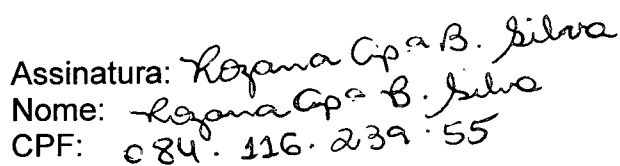 Assinatura: Rozana Ap.ª B. Silva
Nome: Rozana Ap.ª B. Silva
CPF: 084.116.239.55